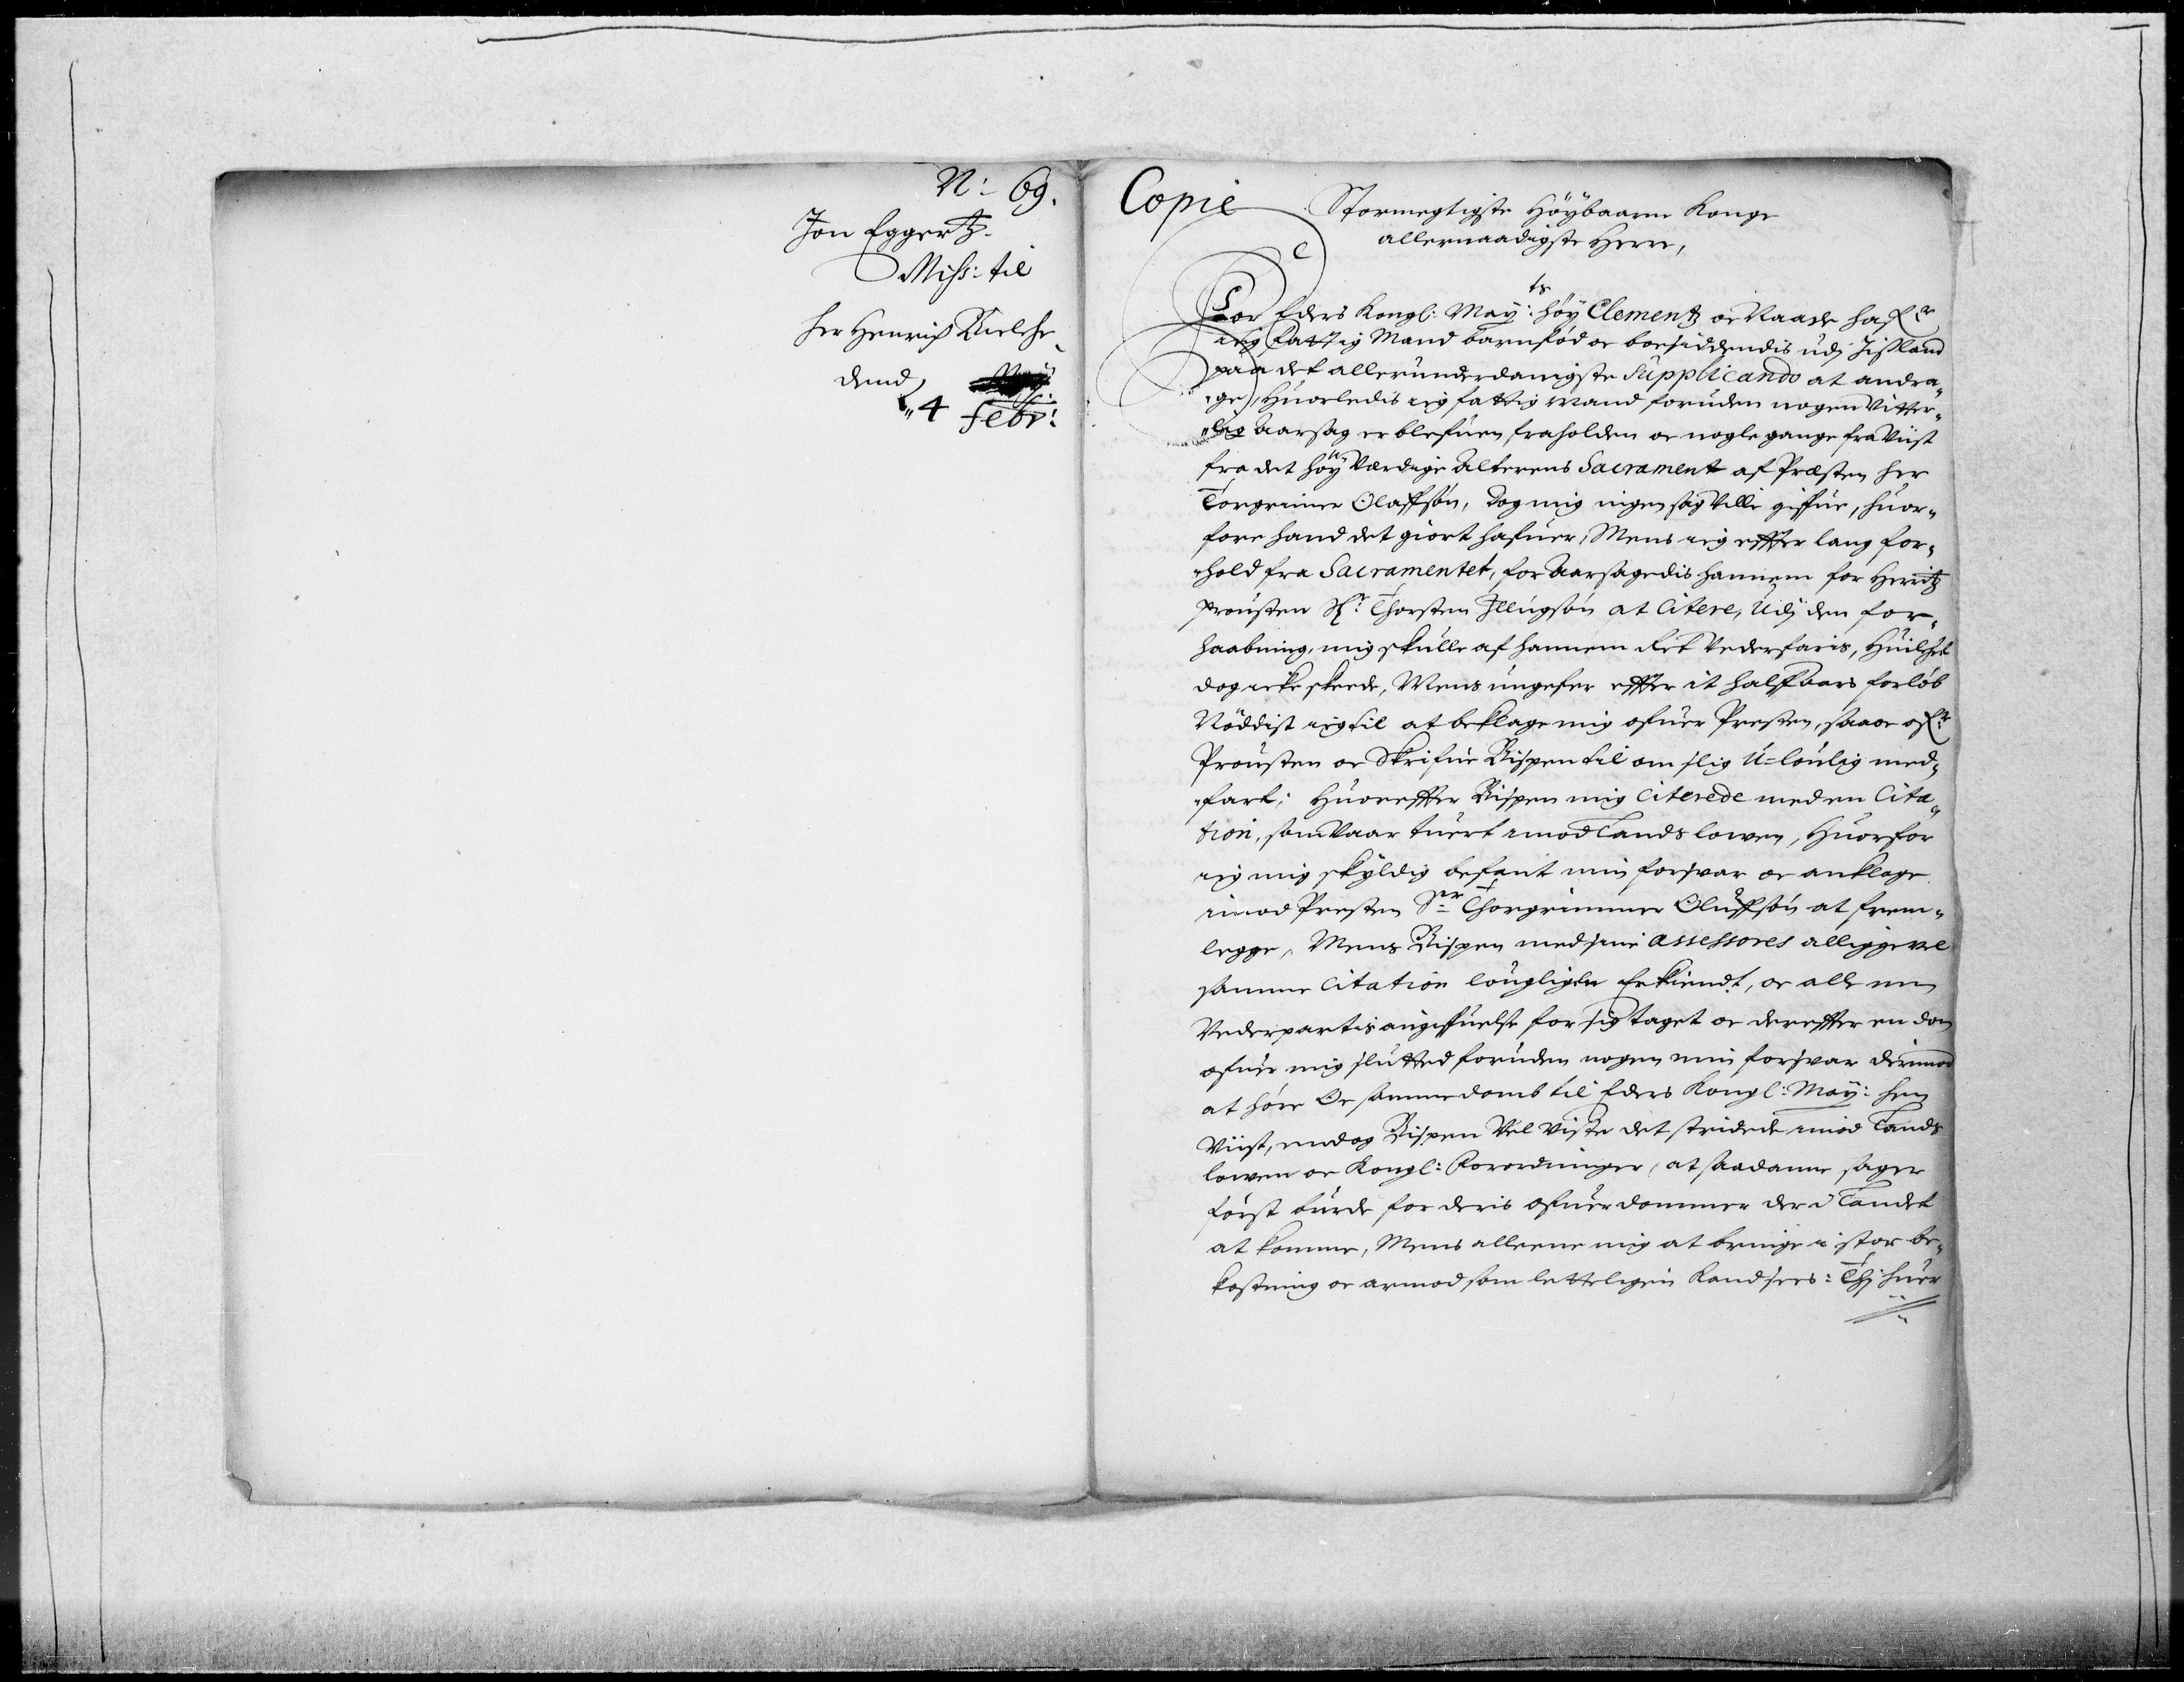 N: 69.
Jon Eggertz.
Miss: til
her Henrich Bielche
dend
4 Febr:
Copie
Stormegtigste Höybaarne Konge
allernaadigste Herre,
For Eders Kongl: May:ts höy Clementz oc Naade hafr
ieg fattig Mand barnfød oc boesiddendis udj Jissland
paa det allerunderdanigste Supplicando at andra-
ge, Huorledis ieg fattig mand foruden nogen vitter-
lig Aarsag er blefuen fraholden oc nogle gange fra viist
fra det höy Værdige Alterens Sacrament af Præsten her
Torgrimer Olaffsøn, dog mig ingen sag ville giffue, huor-
fore hand det giort hafuer, Mens ieg effter lang for-
hold fra Sacramentet, for Aarsagedis hannem for Herritz
Prousten Hr: Thorsten Jllugsøn at Citere, Udj den for-
haabning, mig skulle af hannem Ret Vederfaris, Huilchet
dog icke skeede, Mens ungefer effter it halff Aars forløb
Nøddist ieg til at beklage mig ofuer Presten, saa oc ofr:
Prousten oc Skrifue Bispen til om slig U=loulig med-
fart; Huoreffter Bispen mig Citerede med en Cita-
tion, som Vaar tuert imod Lands lowen, Huorfor
ieg mig skyldig befant min forsvar oc anklage
imod Presten Sr Thorgrimmer Oluffsøn at frem-
legge, Mens Bispen med sine assessores alliggevel
samme Citation lougligen Erkiendt, oc alle min
Vederpartis angiffuelse for sig taget oc dereffter en dom
ofuer mig slutted foruden nogen min forsvar derimod
at høre Oc samme domb til Eders Kongl: May: hen
Viist, endog Bispen Vel Viste det stridede imod Lands
lowen oc Kongl: Forordninger, at saadanne sager
først burde for deris ofuerdommer der i Landet
at komme, Mens alleene mig at bringe i stor be-
kostning oc armod som letteligen Kand sees: Thj huer